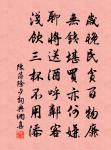 歲晚民貧百物廉
無錢買置亦何嫌
聊將送酒呼鄰客
淺飲三杯不用添
陳藻除夕詞典網